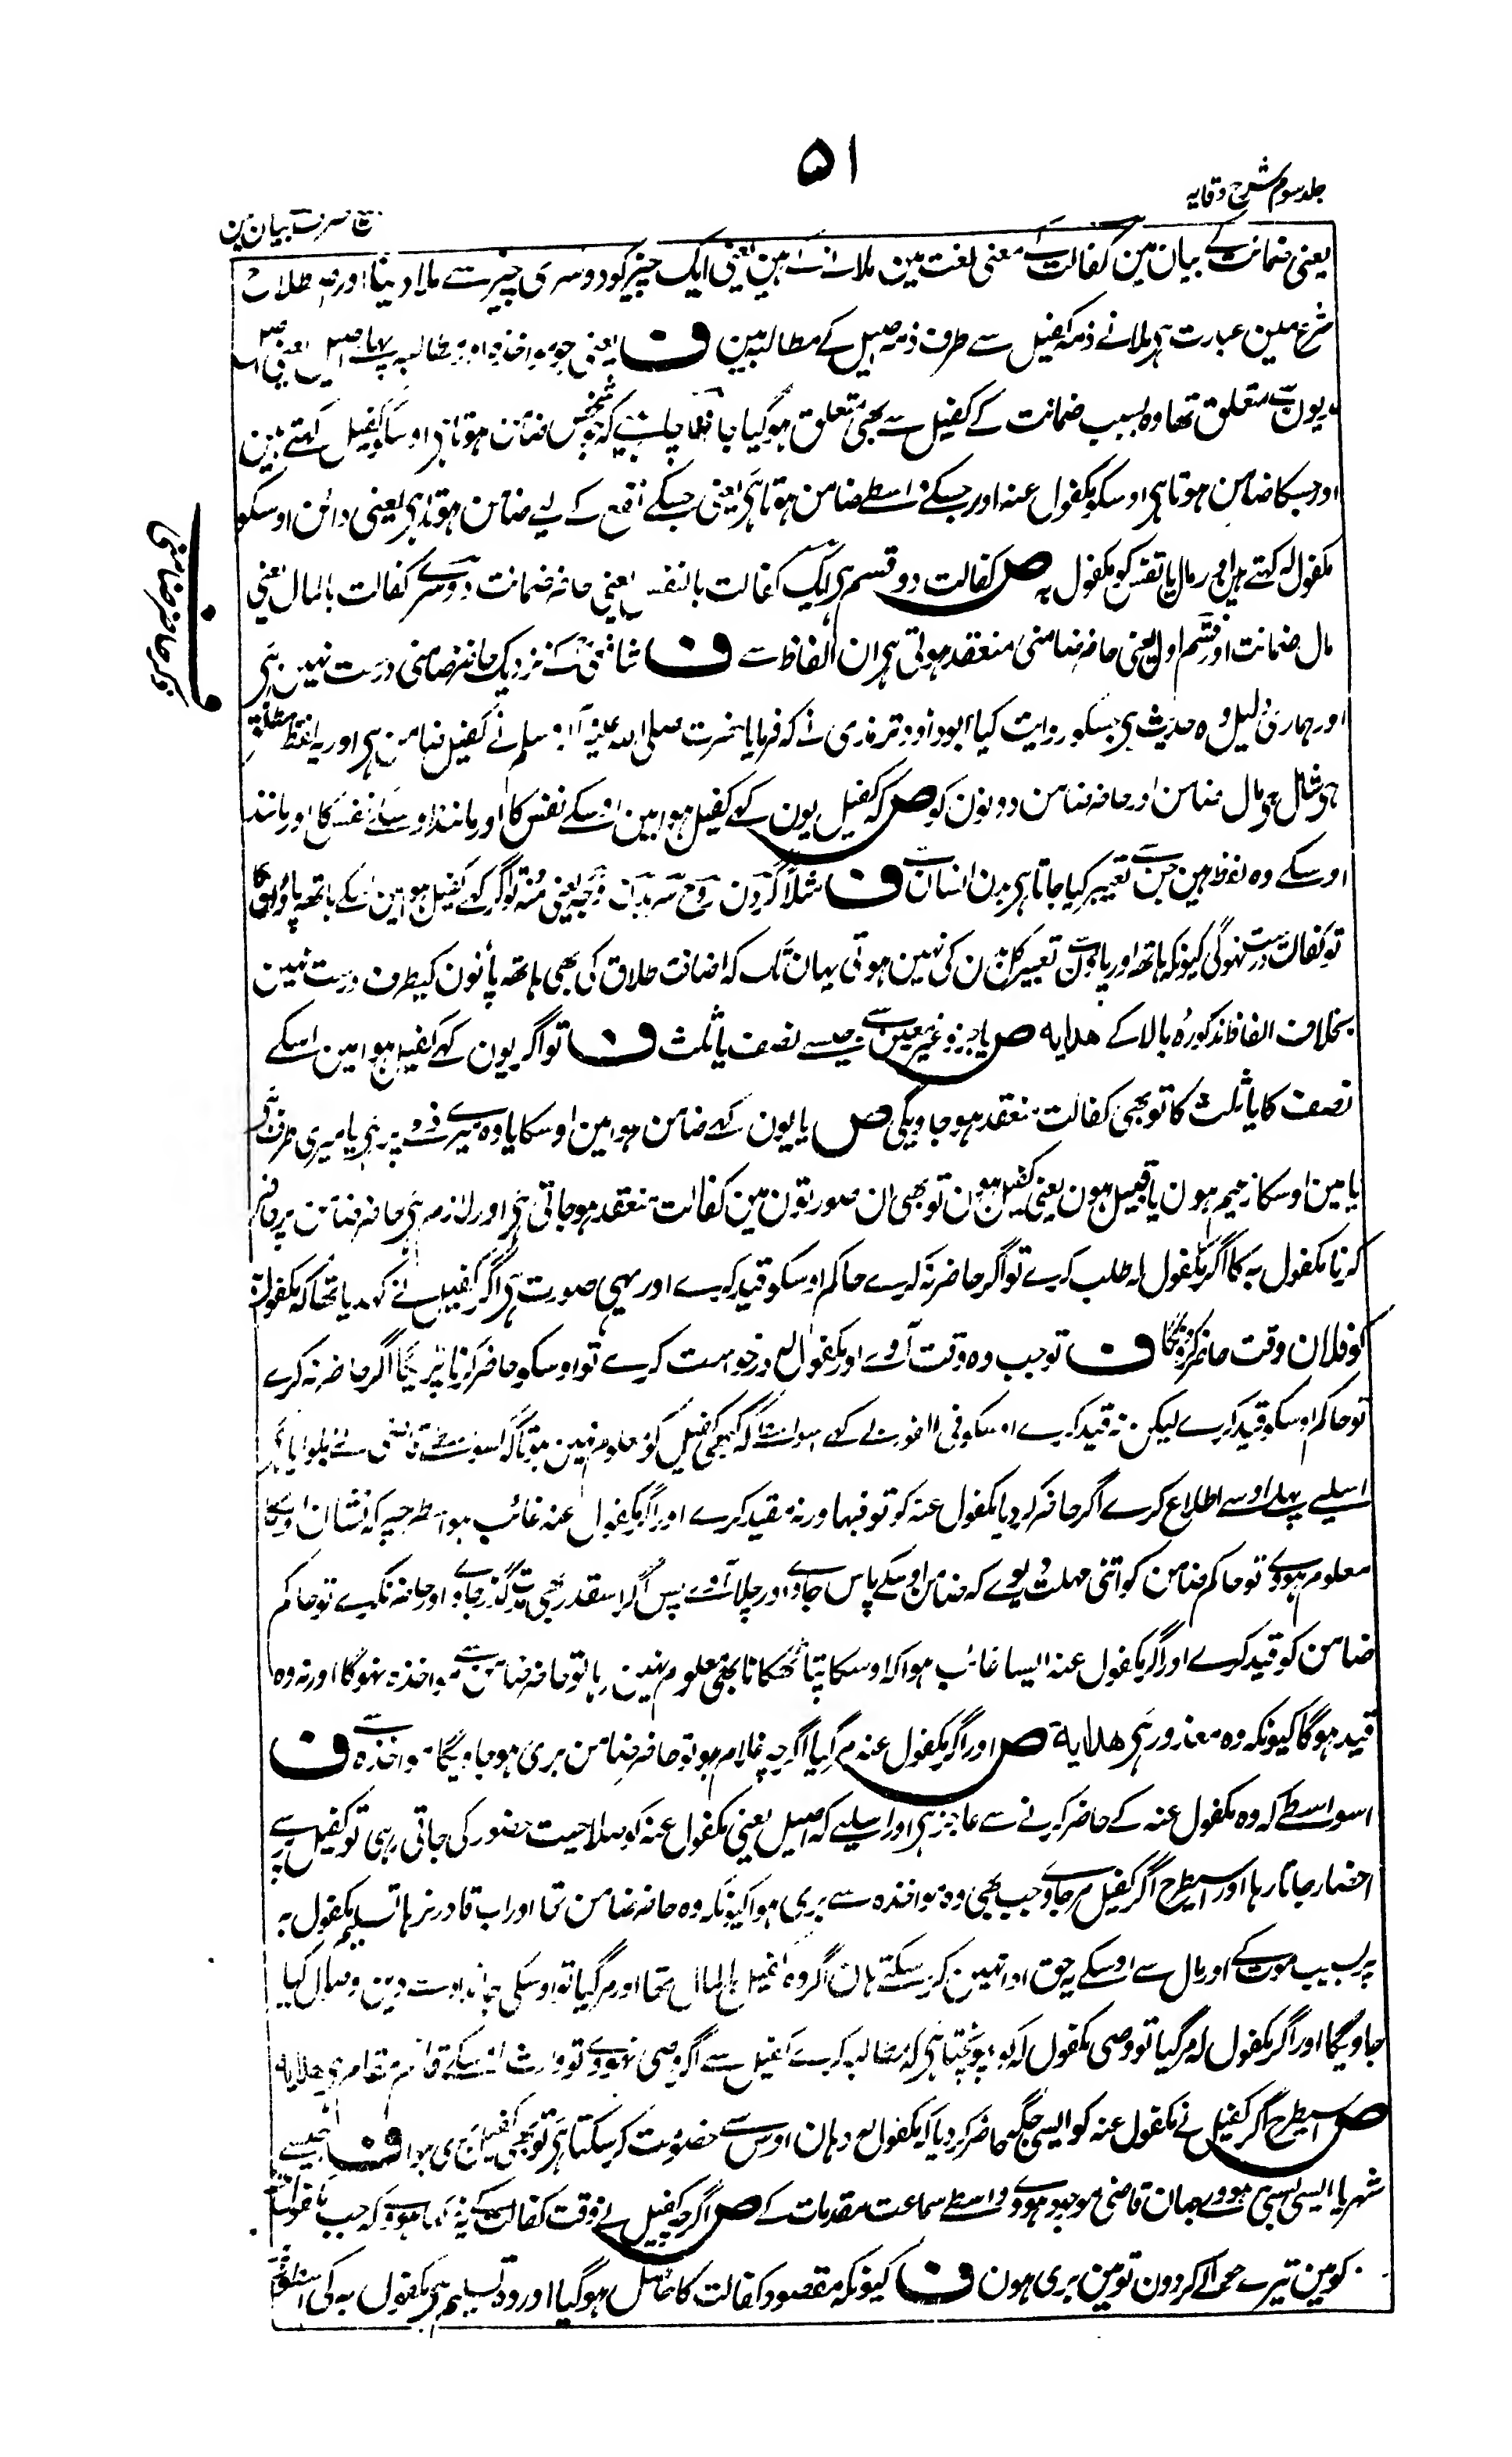 ۵۱
جلد سوم شرح وقایہ
بیع صرف کے بیان مین
یعنی ضمانت کے بیان مین کفالت کے معنی لغت مین ملانے کے ہین یعنی ایک چیز کو دوسری چیز سے ملا دینا اور اصطلاح
شرع مین عبارت ہی ملانے ذمہ کفیل سے طرف ذمہ اصیل کے مطالبہ مین ف یعنی جو مواخذہ اور مطالبہ پہلے اصیل یعنی
مدیون سے متعلق تھا وہ بسبب ضمانت کے کفیل سے بھی متعلق ہوگیا جاننا چاہیے کہ جو شخص ضامن ہوتا ہی اوسکو کفیل کہتے ہین
اور جسکا ضامن ہوتا ہی اوسکو مکفول عنہ اور جسکے واسطے ضامن ہوتا ہی یعنی جسکے نفع کے لیے ضامن ہوتا ہی یعنی دائن اوسکو
مکفول لہ کہتے ہین اور مال یا نفس کو مکفول بہ ص کفالت دو قسم ہی ایک کفالت بالنفس یعنی حاضر ضمانت دوسرے کفالت بالمال یعنی
مال ضمانت اور قسم اول یعنی حاضر ضامنی منعقد ہوتی ہی ان الفاظ سے ف شافعی کے نزدیک حاضر ضامنی درست نہین ہی
اور ہماری دلیل وہ حدیث ہی جسکو روایت کیا ابوداود و ترمذی نے کہ فرمایا حضرت صلی اللہ علیہ وآلہ وسلم نے کفیل ضامن ہی اور یہ لفظ مطلق
ہی شامل ہی مال ضامن اور حاضر ضامن دونون کو ص کہ کفیل یون کہے کفیل ہوا مین اوسکے نفس کا اور مانند اوسکے نفس کا اور مانند
اوسکے وہ لفظ ہین جن سے تعبیر کیا جاتا ہی بدن انسان سے ف مثلاً گردن روح سر بدن وجہ یعنی منہ تو اگر کہے کفیل ہوا مین اسکے ہاتھ پاؤن کا
تو کفالت درست نہوگی کیونکہ ہاتھ اور پاؤن سے تعبیر کل بدن کی نہین ہوتی یہان تک کہ اضافت طلاق کی بھی ہاتھ پانون کیطرف درست نہین
بخلاف الفاظ مذکورۂ بالا کے ھدایہ ص یا جزو غیر معین سے جیسے نصف یا ثلث ف تو اگر یون کہے کفیل ہوا مین اسکے
نصف کا یا ثلث کا تو بھی کفالت منعقد ہو جاویگی ص یا یون کہے ضامن ہوا مین اوسکا یا وہ میرے ذمے پر ہی یا میری طرف ہی
یا مین اوسکا زعیم ہون یا قبیل ہون یعنی کفیل ہون تو بھی ان صورتون مین کفالت منعقد ہو جاتی ہی اور لازم ہی حاضر ضامن پر حاضر
کرنا مکفول بہ کا اگر مکفول لہ طلب کرے تو اگر حاضر نہ کرے حاکم اوسکو قید کرے اور یہی صورت ہی اگر کفیل نے کہدیا تھا کہ مکفول بہ
کو فلان وقت حاضر کرونگا ف تو جب وہ وقت آوے اور مکفول لہ درخواست کرے تو اوسکو حاضر کرنا پڑیگا اگر حاضر نہ کرے
تو حاکم اوسکو قید کرے لیکن نہ قید کرے اوسکو فی الفور اسواسطے کہ کبھی کفیل کو معلوم نہین ہوتا کہ اسوقت قاضی نے بلوایا ہی
اسلیے پہلے اوسے اطلاع کرے اگر حاضر کر دیا مکفول عنہ کو تو فبہا ورنہ مقید کرے اور اگر مکفول عنہ غائب ہوا سطرحپر کہ نشان اوسکا
معلوم ہووے تو حاکم ضامن کو اتنی مہلت دیوے کہ ضامن اوسکے پاس جاوے اور چلا آوے پس اگر اسقدر بھی مدت گذر جاوے اور حاضر نکرے تو حاکم
ضامن کو قید کرے اور اگر مکفول عنہ ایسا غائب ہوا کہ اوسکا پتا ٹھکانا بھی معلوم نہین رہا تو حاضر ضامن سے مواخذہ نہوگا اور نہ وہ
قید ہوگا کیونکہ وہ معذور ہی ھدایہ ص اور اگر مکفول عنہ مرگیا اگرچہ غلام ہو تو حاضر ضامن بری ہو جاویگا مواخذہ سے ف
اسواسطے کہ وہ مکفول عنہ کے حاضر کرنے سے عاجز ہی اور اسلیے کہ اصیل یعنی مکفول عنہ کو صلاحیت حضور کی جاتی رہی تو کفیل پر سے
احضار جاتا رہا اور اسیطرح اگر کفیل مر جاوے جب بھی وہ مواخذہ سے بری ہوا کیونکہ وہ حاضر ضامن تھا اور اب قادر نرہا تسلیم مکفول بہ
پر بسبب موت کے اور مال سے اوسکے یہ حق ادا نہین کرسکتے ہان اگر وہ کفیل بالمال تھا اور مرگیا تو اوسکی جائداد سے دین وصول کیا
جاویگا اور اگر مکفول لہ مرگیا تو وصی مکفول لہ کو پہونچتا ہی کہ مطالبہ کرے کفیل سے اگر وصی نہووے تو وارث اوسکے قائم مقام ہی ھدایہ
ص اسیطرح اگر کفیل نے مکفول عنہ کو ایسی جگہ حاضر کر دیا کہ مکفول لہ وہان اوس سے خصومت کرسکتا ہی تو بھی کفیل بری ہوا ف جیسے
شہر یا ایسی بستی ہووے جہان قاضی موجود ہووے واسطے سماعت مقدمات کے ص اگرچہ کفیل نے وقت کفالت کے یہ نہ کہا ہووے کہ جب
کو مین تیرے حوالے کر دون تو مین بری ہون ف کیونکہ مقصود کفالت کا حاصل ہوگیا اور وہ تسلیم ہی مکفول بہ کی
ذکر حاضر ضامنی